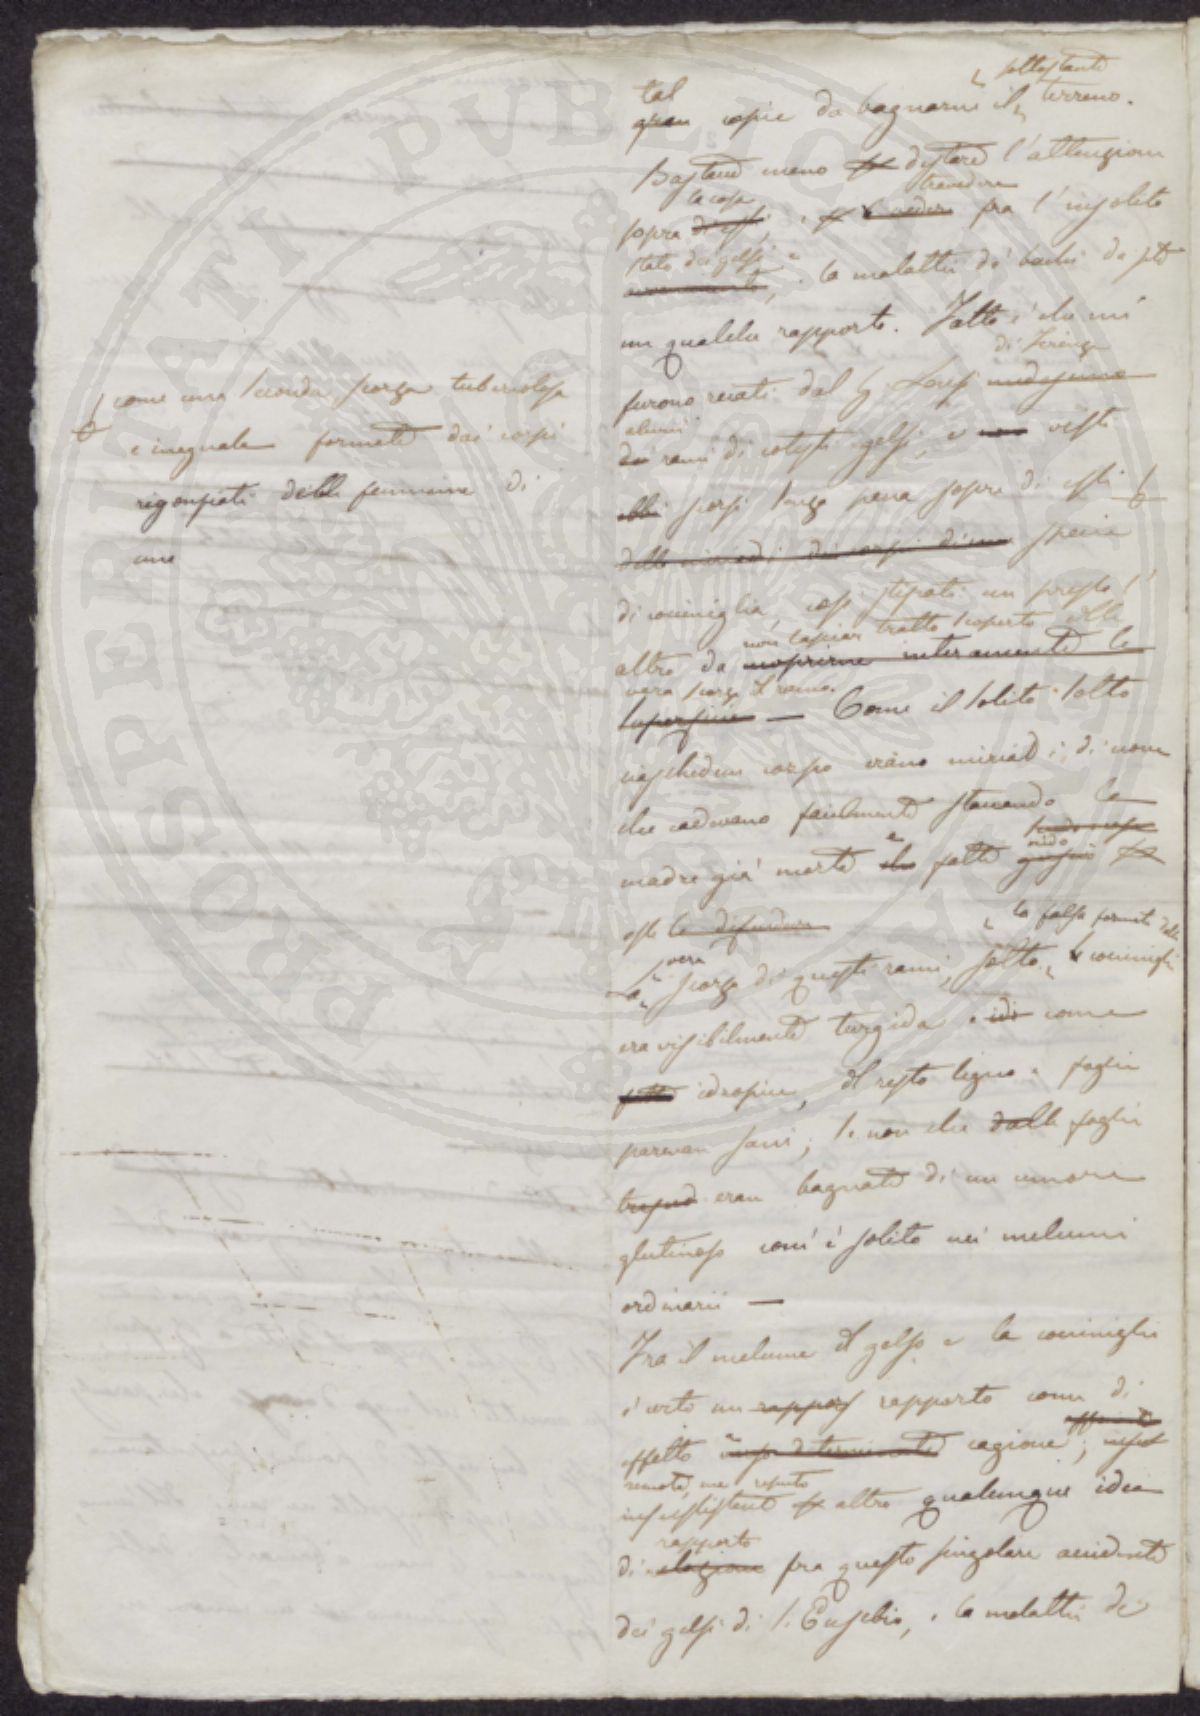 sottostante
tal
gran copia da bagnarne il terreno.
Bastano meno destare l'attenzione
la cosa travedere
sopra di essi, e vedere fra l'insolito
stato dei gelsi e
la malattia de' bachi da seta
un qualche rapporto. Fatto è che mi
di Firenze
furono recati dal medesimo
alcuni
dei rami di cotesti gelsi, e non visti
ebbi scorsi lungo pena sopra di essi
delle miriadi dei corpi di una specie
di cocciniglia, così stipati un presso l'
non lasciar tratto scoperto della
altro da ricoprirne interamente la
vera scorza il ramo.
superficie — Come il solito sotto
ciaschedun corpo erano miriadi di uova
che cadevano facilmente staccando la
madre già morta e fatta nido
esse le difendeva
la falsa formata dalle
vera
La scorza di questi rami, sotto le cocciniglie
era visibilmente turgida e come
idropica, del resto legno e foglie
parevan sani; se non che dalle foglie
eran bagnate di un umore
glutinoso com'è solito nei melumi
ordinarii —
Fra il melume del gelso e la cocciniglia
è certo un rappor rapporto come di
effetto a cagione;
remota, ma reputo
insussistente altro qualunque idea
rapporto
di relazione fra questo singolare accidente
dei gelsi di S. Eusebio, e la malattia dei
come una seconda scorza tubercolosa
e ineguale formata dai corpi
rigonfiati delle femmine di
una
PROSPERITATI PUBLICAE